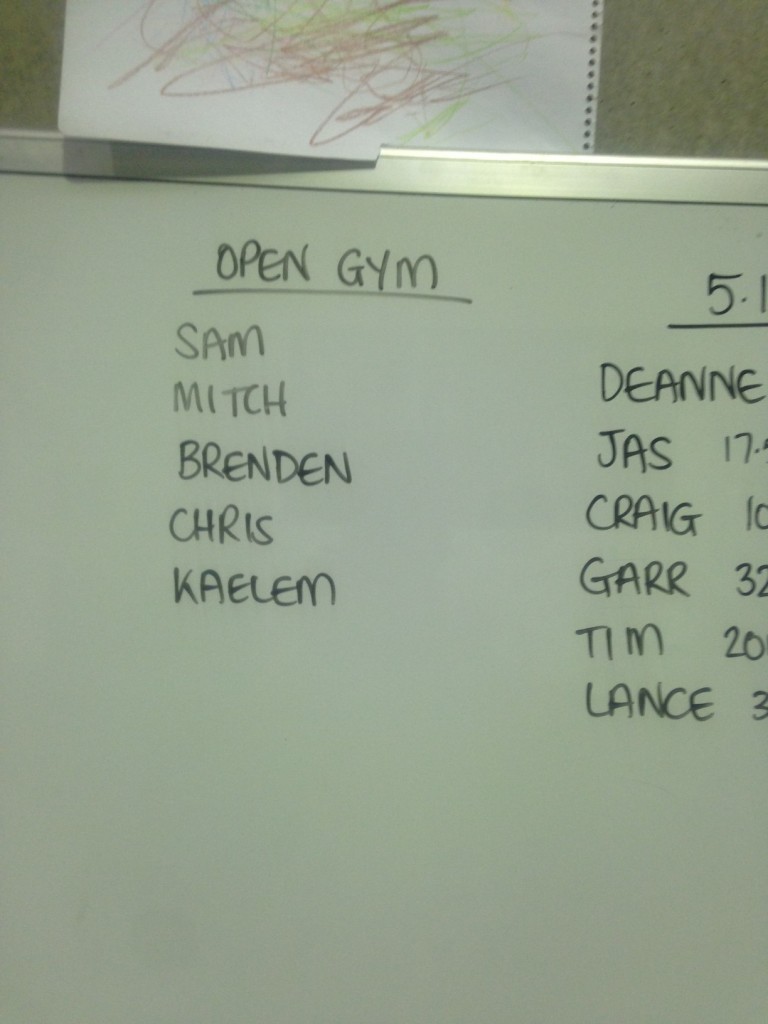 OPEN GYM
SAM
MITCH
BRENDEN
CHRIS
KAELEM
5.1
DEANNE
JAS 17.
CRAIG 10
GARR 32
TIM 20
LANCE 3